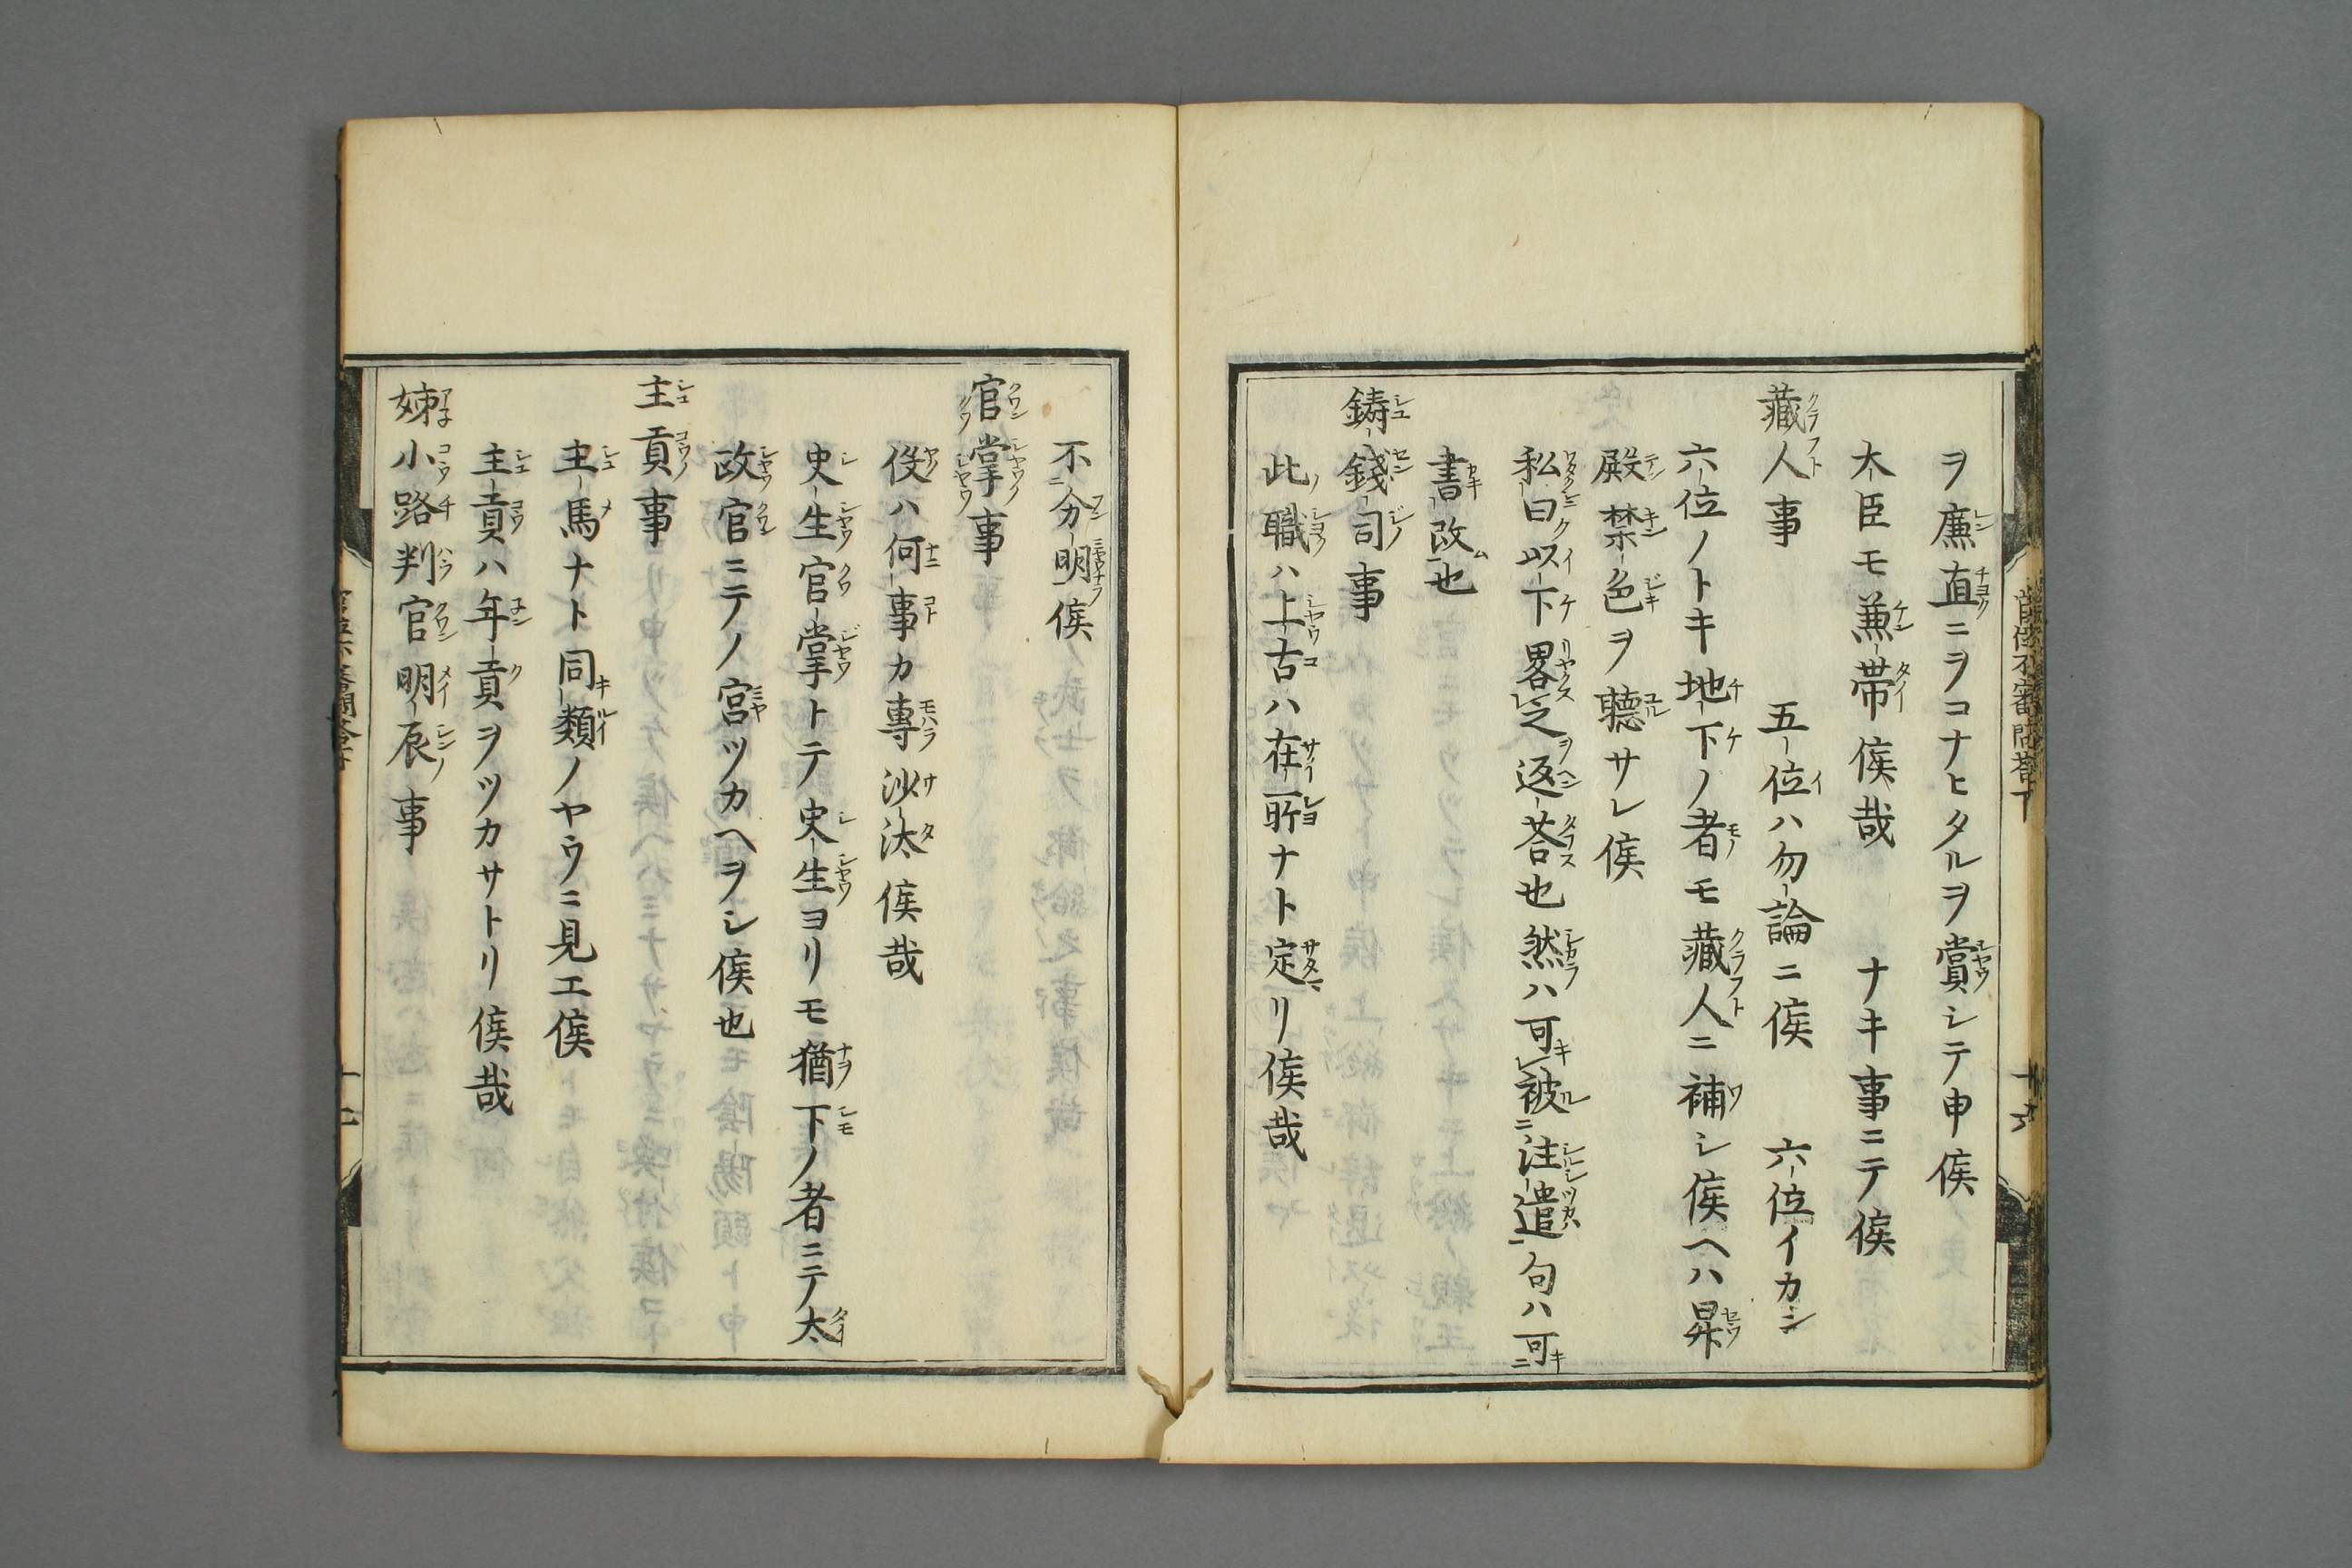 ヲ廉直ニヲコナヒタルヲ賞シテ申候
大臣モ兼帯候哉　ナキ事ニテ候
藏人事　五位ハ勿論ニ候　六位イカン
六位ノトキ地下ノ者モ藏人ニ補シ候ヘハ昇
殿禁色ヲ聽サレ候
私曰以下畧之返荅也然ハ可被注遣句ハ可
書改也
鋳錢司事
此職ハ上古ハ在所ナト定リ候哉
不分明候
官掌事
役ハ何事カ專沙汰候哉
史生官掌トテ史生ヨリモ猶下ノ者ニテ太
政官ニテノ宮ツカヘヲシ候也
主貢事
主馬ナト同類ノヤウニ見エ候
主貢ハ年貢ヲツカサトリ候哉
姉小路判官明辰事